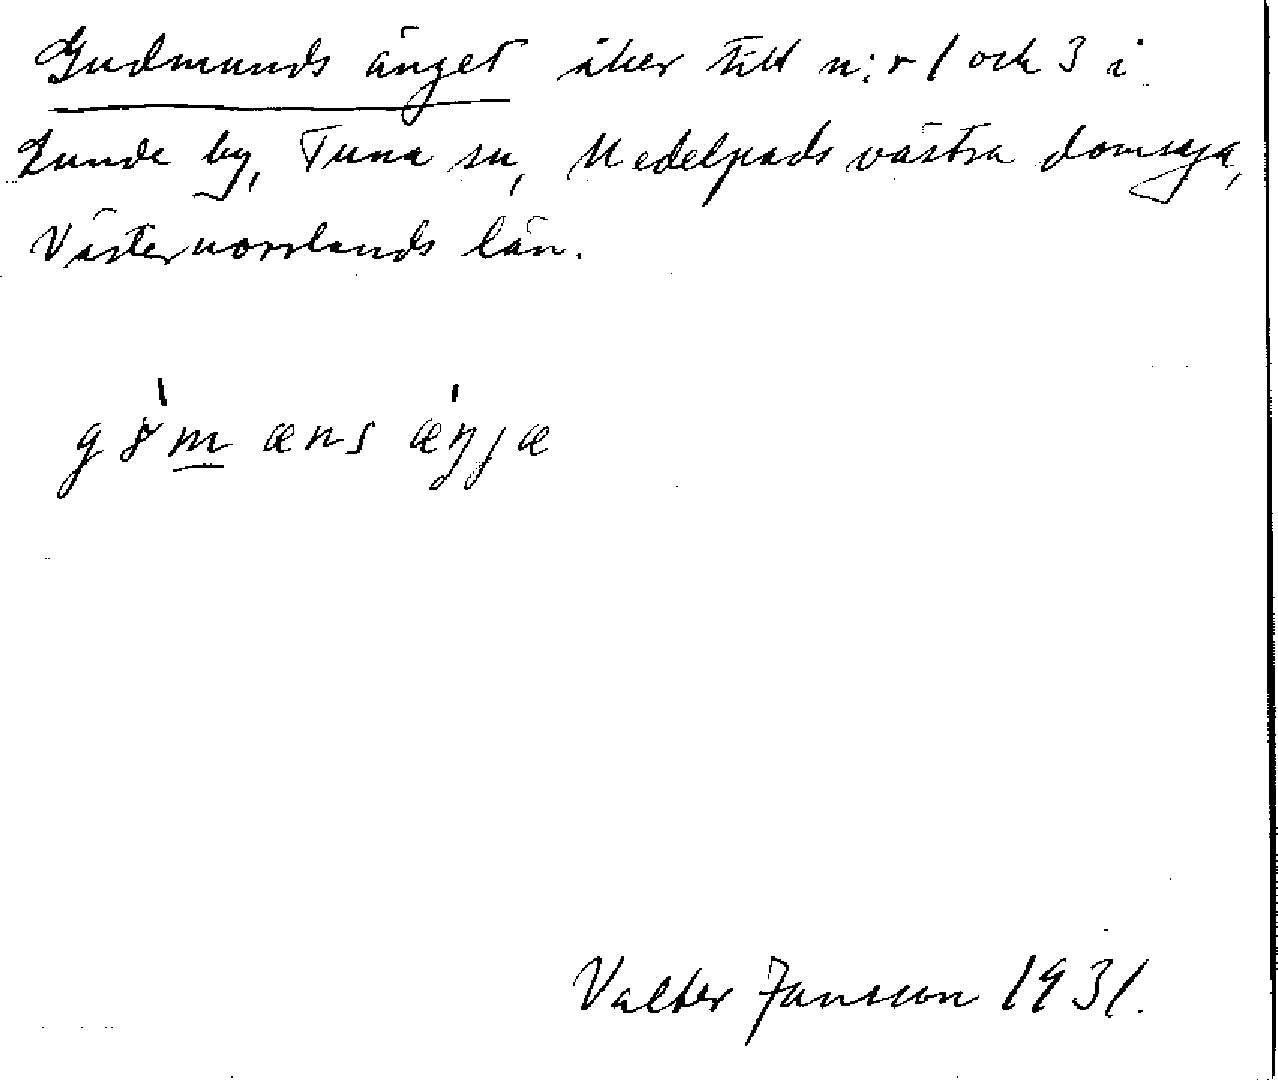 Gudmunds änget åker till n:r 1 och 3 i
Lunde by, Tuna sn, Medelpads västra domsaga,
Västernorrlands län.
æns æ̀ŋjæ
Valter Jansson 1931.